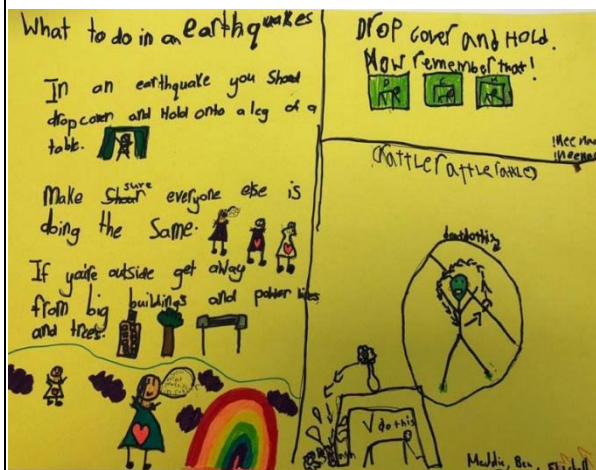 What to do in an earthquakes
In an earthquake you Shoud
drop cover and Hold onto a leg of a
table.
Make sure everyone else is
doing the Same.
If you're outside get away
from big buildings and power lines
and trees.
DroP Cover and HOLD.
Now remember that!
rattlerattlerattle
dontdothis
V do this
Maddie, Ben